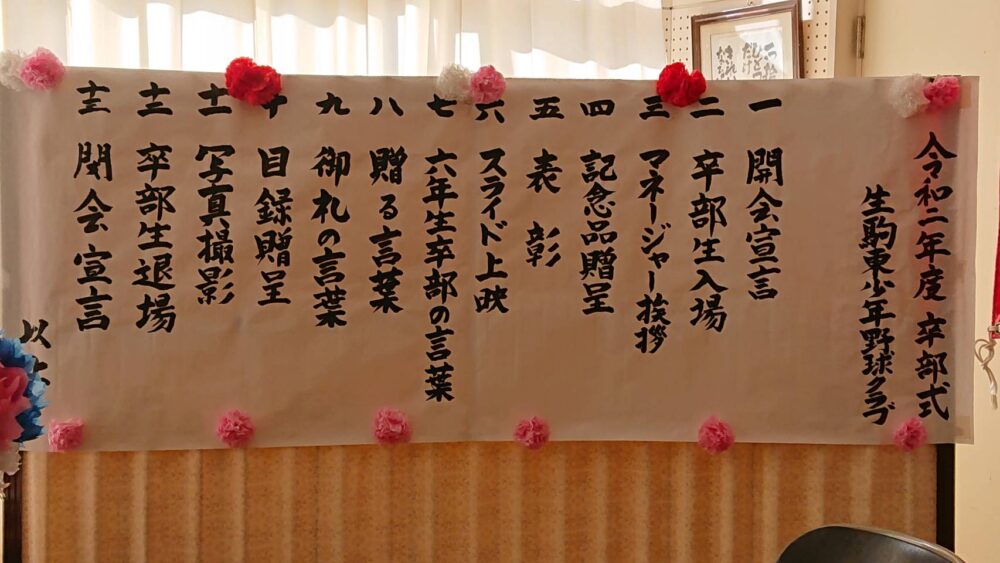 令和二年度 卒部式
生駒東少年野球クラブ
一 開会宣言
二 卒部生入場
三 マネージャー挨拶
四 記念品贈呈
五 表彰
六 スライド上映
七 六年生卒部の言葉
八 贈る言葉
九 御札の言葉
十 目録贈呈
十一 写真撮影
十二 卒部生退場
十三 閉会宣言
以上